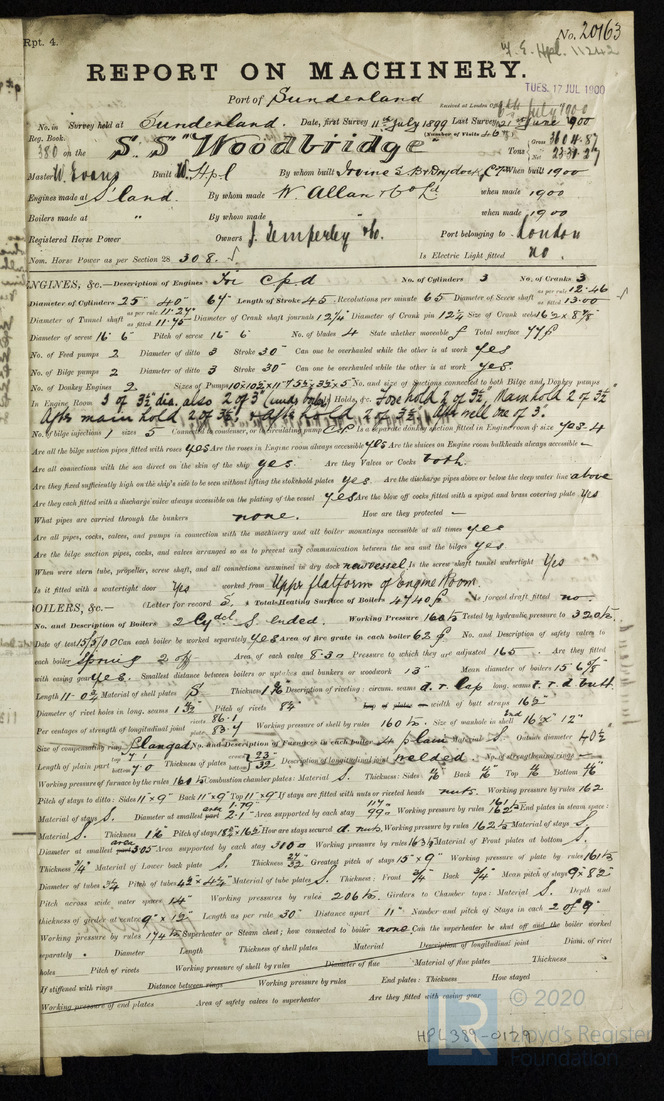 Rpt. 4.
No. 20163
F. E. Hpl. 11242
REPORT ON MACHINERY.
TUES. 17 JUL 1900
Port of Sunderland
Received at London Office
No. in Survey held at Sunderland. Date, first Survey 11th July 1899 Last Survey June 1900
Reg. Book. (Number of Visits 46)
380 on the S.S "Woodbridge" Tons Gross Net
Master W. Evans Built W. Hpl By whom built Irvine's When built 1900
Engines made at S'land. By whom made W. Allan & Co Ld when made 1900
Boilers made at " By whom made when made 1900
Registered Horse Power Owners J. Temperley & Co. Port belonging to London
Nom. Horse Power as per Section 28 308. Is Electric Light fitted no.
ENGINES, &c.—Description of Engines Tri cpd No. of Cylinders 3 No. of Cranks 3
Diameter of Cylinders 25" 40" 67" Length of Stroke 45" Revolutions per minute 65 Diameter of Screw shaft as per rule 12.46 as fitted 13.00
Diameter of Tunnel shaft as per rule 11.27" as fitted 11.75" Diameter of Crank shaft journals 12¼" Diameter of Crank pin 12¼ Size of Crank webs
Diameter of screw 16' 6" Pitch of screw 16' 6" No. of blades 4 State whether moveable Total surface 77
No. of Feed pumps 2 Diameter of ditto 3 Stroke 30" Can one be overhauled while the other is at work yes
No. of Bilge pumps 2 Diameter of ditto 3 Stroke 30" Can one be overhauled while the other is at work yes.
No. of Donkey Engines 2 Sizes of Pumps No. and size of Suctions connected to both Bilge and Donkey pumps
In Engine Room 3 of 3½ dia. also 2 of 3" (under boiler) In Holds, &c. Fore hold 2 of 3½, Main hold 2 of 3½"
After main hold 2 of 3½ & after hold 2 of 3½. After well one of 3".
No. of bilge injections 1 sizes 5 Connected to condenser, or to circulating pump Is a separate donkey suction fitted in Engine room & size yes. 4
Are all the bilge suction pipes fitted with roses yes Are the roses in Engine room always accessible yes Are the sluices on Engine room bulkheads always accessible —
Are all connections with the sea direct on the skin of the ship yes. Are they Valves or Cocks both.
Are they fixed sufficiently high on the ship's side to be seen without lifting the stokehold plates yes Are the discharge pipes above or below the deep water line above
Are they each fitted with a discharge valve always accessible on the plating of the vessel yes Are the blow off cocks fitted with a spigot and brass covering plate yes
What pipes are carried through the bunkers none. How are they protected —
Are all pipes, cocks, valves, and pumps in connection with the machinery and all boiler mountings accessible at all times yes
Are the bilge suction pipes, cocks, and valves arranged so as to prevent any communication between the sea and the bilges yes.
When were stern tube, propeller, screw shaft, and all connections examined in dry dock new vessel Is the screw shaft tunnel watertight Yes
Is it fitted with a watertight door Yes worked from Upper platform of Engine Room.
BOILERS, &c.— (Letter for record S.) Total Heating Surface of Boilers 4740 Is forced draft fitted no.
No. and Description of Boilers 2 Cydcl S. Ended. Working Pressure 160 Tested by hydraulic pressure to 320
Date of test 15/5/00 Can each boiler be worked separately yes Area of fire grate in each boiler 62 No. and Description of safety valves to
each boiler Spring 2 off Area of each valve 8.30 Pressure to which they are adjusted 165 Are they fitted
with easing gear yes. Smallest distance between boilers or uptakes and bunkers or woodwork 13" Mean diameter of boilers
Length Material of shell plates S Thickness Description of riveting: circum. seams d.r. lap long. seams t.r.d butt.
Diameter of rivet holes in long. seams Pitch of rivets Lap of plates or width of butt straps
Per centages of strength of longitudinal joint rivets 86.1 plate 83.7 Working pressure of shell by rules 160 Size of manhole in shell 16" x 12"
Size of compensating ring flanged No. and Description of Furnaces in each boiler plain Material S. Outside diameter 40½
Length of plain part top bottom Thickness of plates Description of longitudinal joint welded. No. of strengthening rings —
Working pressure of furnace by the rules Combustion chamber plates: Material S. Thickness: Sides Back Top Bottom
Pitch of stays to ditto: Sides 11" x 9" Back 11" x 9" Top 11" x 9" If stays are fitted with nuts or riveted heads nuts. Working pressure by rules 162
Material of stays S. Diameter at smallest part Area supported by each stay Working pressure by rules End plates in steam space:
Material S. Thickness Pitch of stays How are stays secured d. nuts. Working pressure by rules Material of stays S.
Diameter at smallest part Area supported by each stay Working pressure by rules Material of Front plates at bottom S.
Thickness ¾" Material of Lower back plate S. Thickness Greatest pitch of stays 15" x 9" Working pressure of plate by rules
Diameter of tubes 3¼ Pitch of tubes Material of tube plates S. Thickness: Front Back Mean pitch of stays
Pitch across wide water spaces 14" Working pressures by rules Girders to Chamber tops: Material S. Depth and
thickness of girder at centre Length as per rule 30" Distance apart 11" Number and pitch of Stays in each 2 of 9"
Working pressure by rules 174 Superheater or Steam chest; how connected to boiler none. Can the superheater be shut off and the boiler worked
separately Diameter Length Thickness of shell plates Material Description of longitudinal joint Diam. of rivet
holes Pitch of rivets Working pressure of shell by rules Diameter of flue Material of flue plates Thickness
If stiffened with rings Distance between rings Working pressure by rules End plates: Thickness How stayed
Working pressure of end plates Area of safety valves to superheater Are they fitted with easing gear
© 2020
Lloyd's Register
Foundation
HPL389-0129